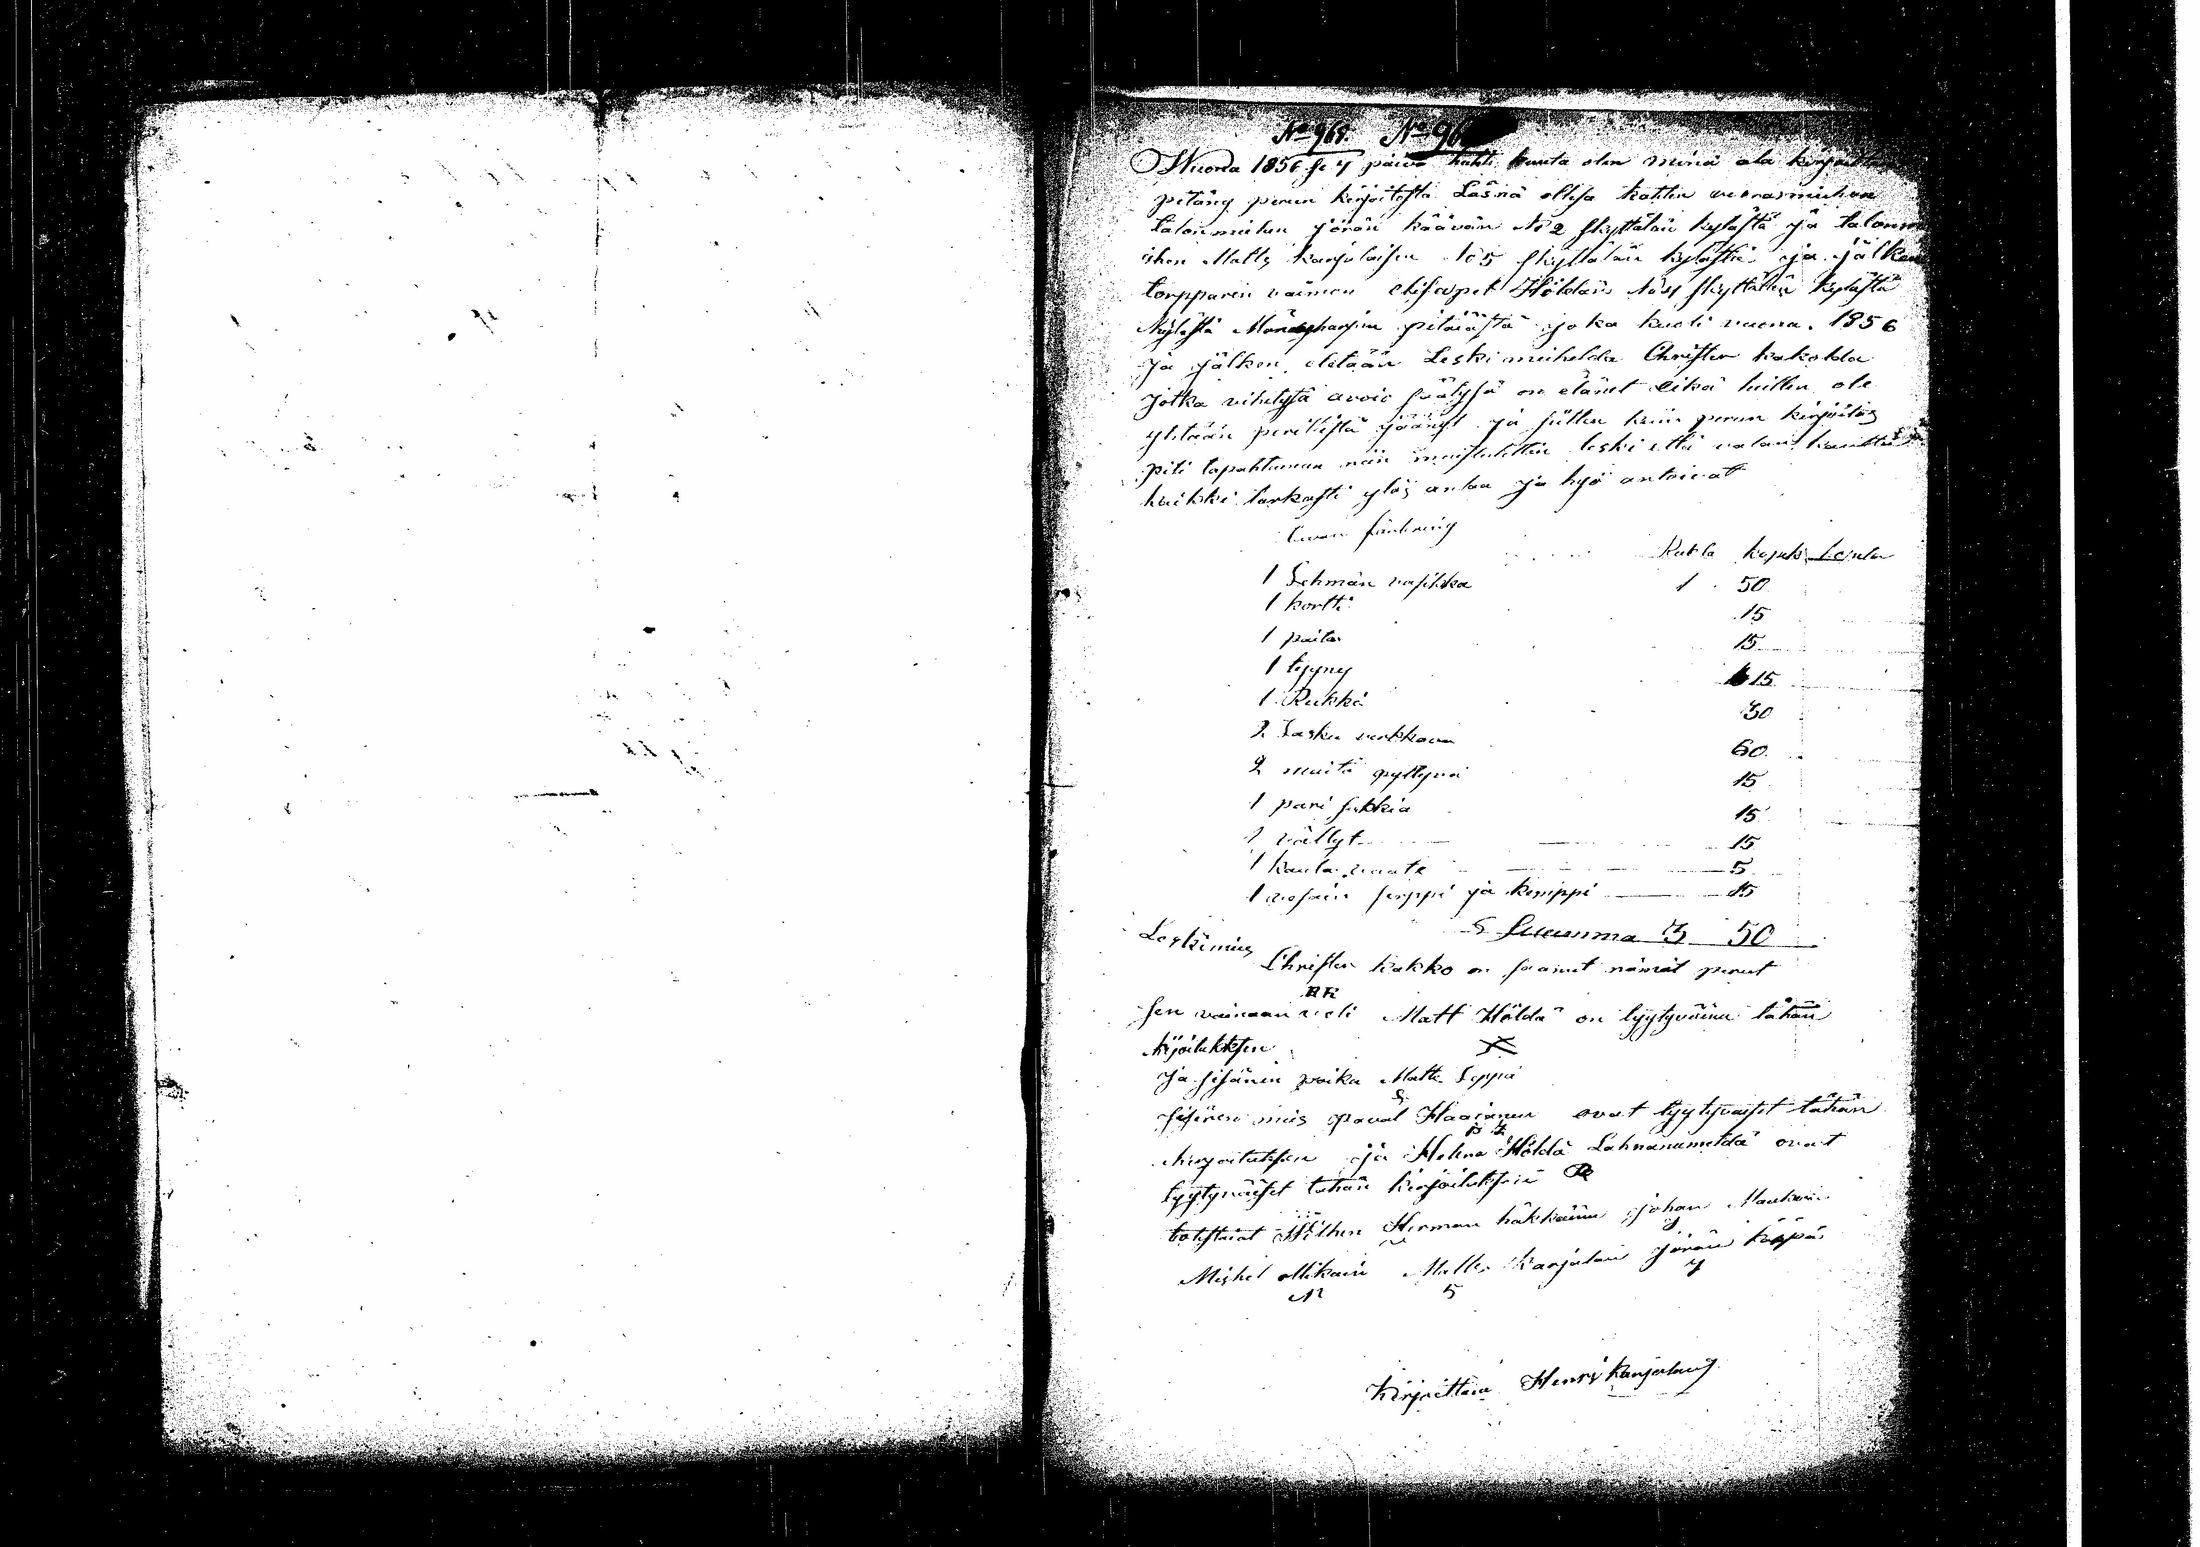 No 968. No 96
Wuona 1856 se 4 päivä huhti kuuta olen minä ala kirjoittanu
pitäny perun kirjoitosta Läsnä ollesa kahten vierasmiehen
talon miehen jörän käävän No 2 skyttälän kylästä ja talonm
iehen Matts karjalaisen No 5 skyttälän kylästä ja jälken
torpparin vaimon elisapet Höldän No 4 skyttälän kylästä
joka kuoli vuona. 1856
ja jälken eletään Leski mieheldä Christer kakolda
jotka vihitysä avio säätysä on elänet eikä heillen ole
yhtään perillistä jäänyt ja sitten kuin perun kirjoitus
piti tapahtuman niin muistutettin leski että valan kautta
kaikki tarkasti ylös antaa ja hyö antoivat
Rubla kopek
1 Lehmän vasikka 1 50
1 kortti 15
1 paita 15
1 tyyny 15
1 Rukki 30
2 Lasku verkkova 60
2 muita pyttyvä 15
1 pari sukkia 15
1 vällyt 15
1 kaula vaate 5
1 ja kimppi 15
Suumma 3 50
Leskimies
Christer kakko on saanut nämät perut
sen vainaan veli Matt Höldä on tyytyväinen tähän
kirjoitukksen
ja sisären poika Matts Seppä
sisären mies paval Haaianen ovat tyytyväiset tähän
kirjoituksen ja Helena Höldä Lahnanumelda ovat
tyytyväiset tähän kirjoituksen
totistaiat Herman häkkäinen johan
Mishel ollikain Matts Karjalain jörän käppä
N 5 4
Kirjoittaia Henri Karjalaing